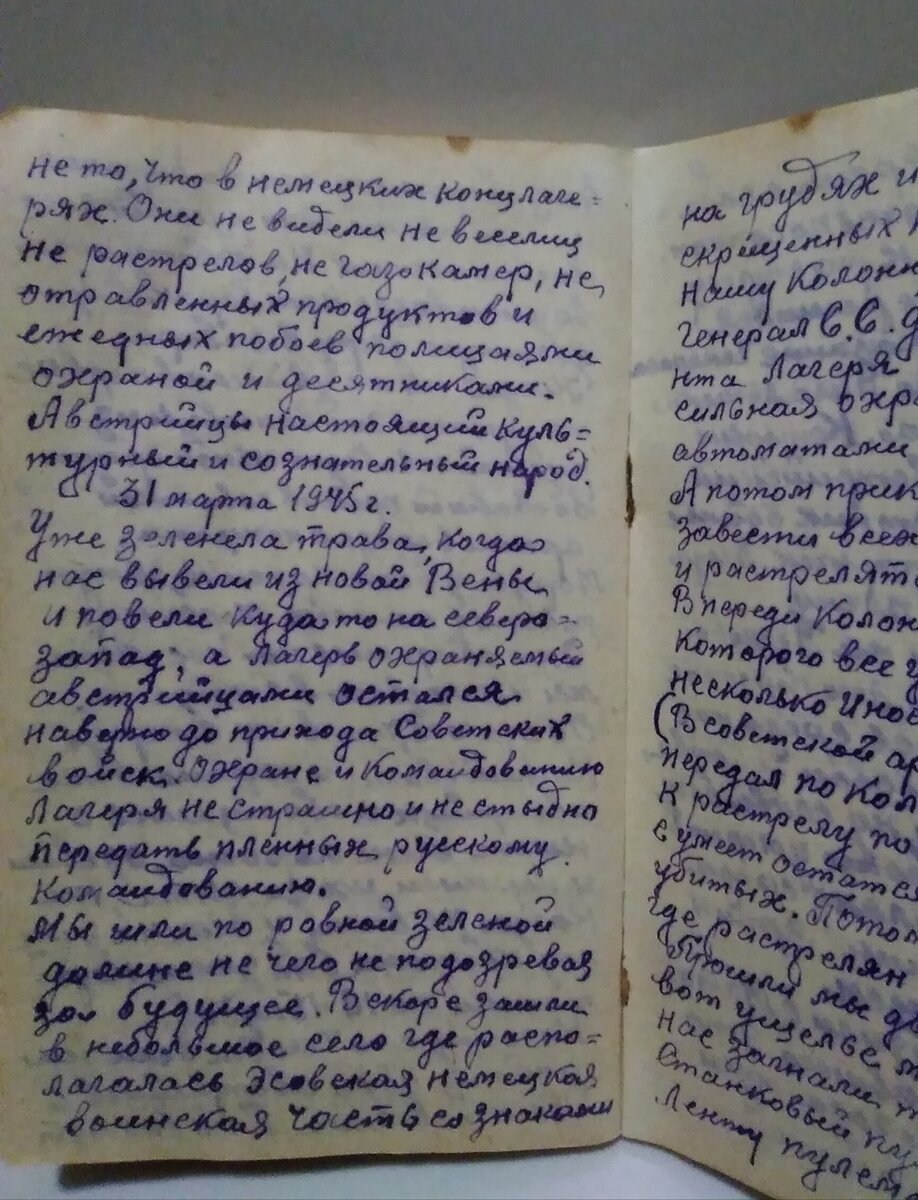 не то, что в немецких концлаге=
рях. Они не видели не веселиц
не растрелов, не газокамер, не
отравленных продуктов и
ежедных побоев полицаями
охраной и десятниками.
Австрийцы настоящий куль=
турный и сознательный народ.
31 марта 1945 г.
Уже зеленела трава, когда
нас вывели из новой Вены
и повели куда то на северо=
запад, а лагерь охраняемый
австрийцами остался
наверно до прихода Советских
войск. Охране и командованию
лагеря не страшно и не стыдно
передать пленных русскому
командованию.
Мы шли по ровной зеленой
долине не чего не подозревая
за будущее. Вскоре зашли
в небольшое село где распо=
лагалась Эсовская немецкая
воинская часть со знаками
на грудях и
скрещенных
нашу колонн
генерал В.В. д
нта лагеря
сильная охра
автоматами
А потом прик
завести всех
и растрелят
Впереди колон
которого все у
несколько ино
(В советской ар
передал по кол
к растрелу по
сумеет остатся
убитых. Пото
где растрелян
Прошли мы д
вот ущелье
нас загнали
станковый пу
ленту пулем